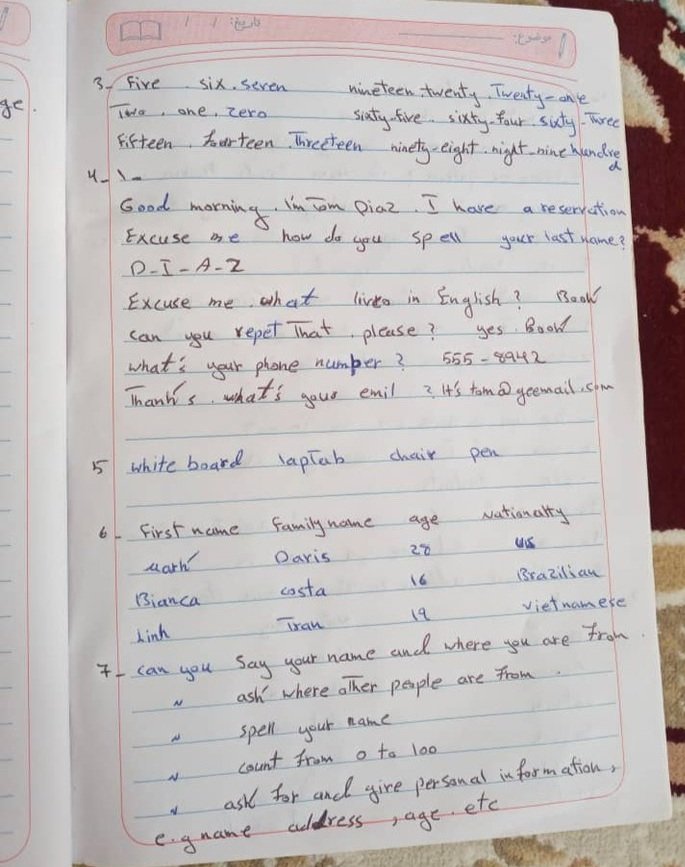 ge.
تاریخ: / /
موضوع:
3- Five . six . seven nineteen . twenty . Twenty-one
Two . one . zero sixty-five . sixty-four . sixty-Three
Fifteen . fourteen . Threeteen ninety-eight . night-nine hundred
4- 1-
Good morning . I'm Tom Diaz . I have a reservation
Excuse me how do you spell your last name?
D-I-A-Z
Excuse me . what in English? Book
can you repet That . please? yes . Book
what's your phone number? 555-8942
Thank's . what's your emil ? It's tom@geemail.com
5 white board laptab chair pen
6- First name Family name age Nationalty
Mark Daris 28 US
Bianca costa 16 Brazilian
Linh Tran 19 vietnamese
7- can you say your name and where you are from.
〃 ask where other people are from.
〃 spell your name
〃 count from 0 to 100
〃 ask for and give personal information,
e.g name address, age. etc